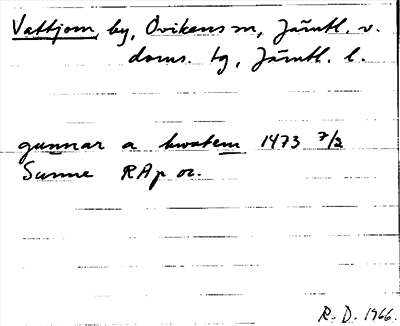 Vattjom, by, Ovikens sn, Jämtl. v.
doms. tg, Jämtl. l.
gunnar a hwatem 1473 7/2
Sunne RAp or.
R. D. 1966.